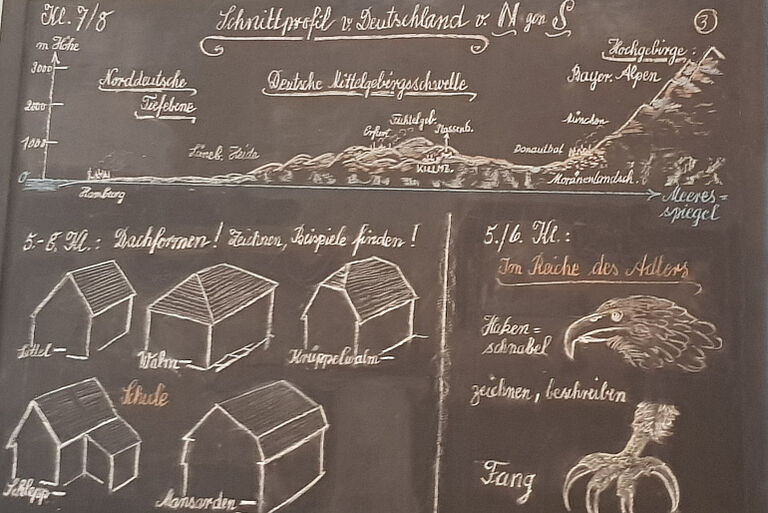 Kl. 7/8
Schnittprofil v. Deutschland v. N gen S
3
m Höhe
3000
2000
1000
0
Norddeutsche
Tiefebene
Deutsche Mittelgebirgsschwelle
Hochgebirge:
Bayer. Alpen
Lüneb. Heide
Erfurt
Fichtelgeb.
Plassenb.
KULMB.
München
Donautal
Moränenlandsch.
Hamburg
Meeres=
spiegel
5.-6. Kl.: Dachformen! Zeichnen, Beispiele finden!
Sattel-
Walm-
Krüppelwalm-
Schule
Schlepp-
Mansarden-
5./6. Kl.:
Im Reiche des Adlers
Haken=
schnabel
zeichnen, beschreiben
Fang